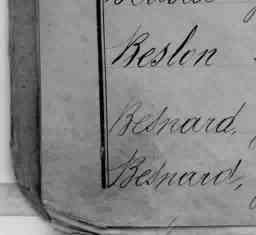 Beslon
Besnard,
Besnard,